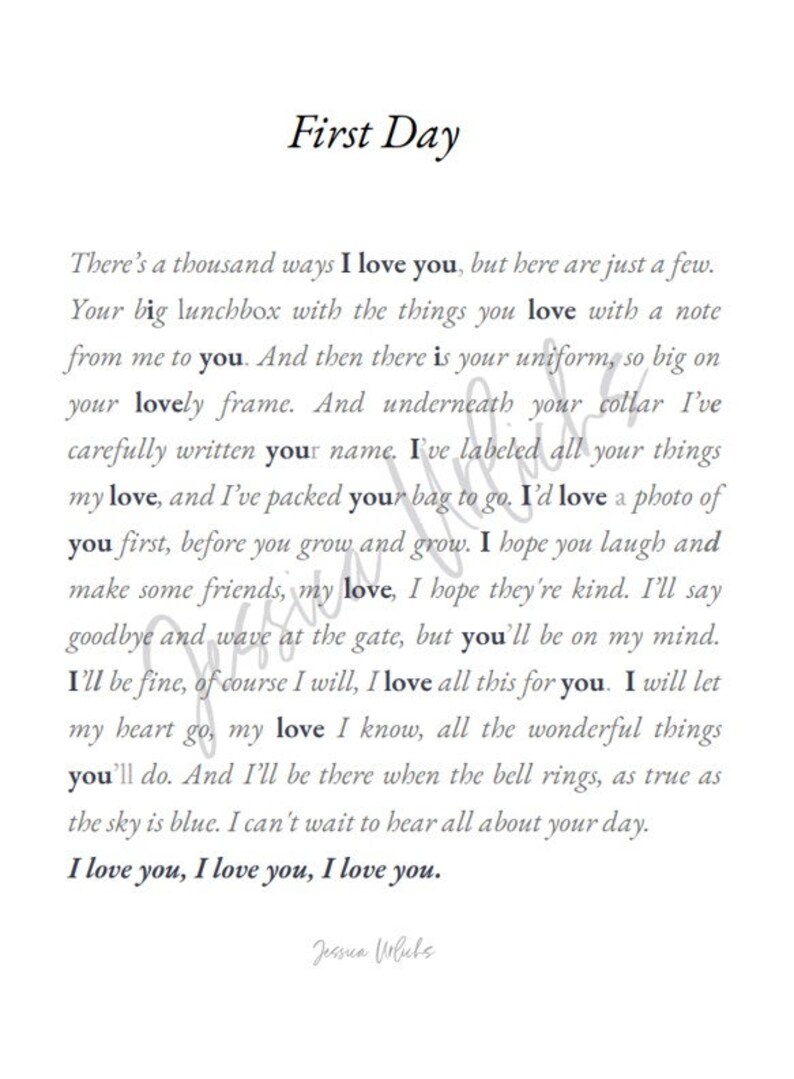 First Day
There's a thousand ways I love you, but here are just a few.
Your big lunchbox with the things you love with a note
from me to you. And then there is your uniform, so big on
your lovely frame. And underneath your collar I've
carefully written your name. I've labeled all your things
my love, and I've packed your bag to go. I'd love a photo of
you first, before you grow and grow. I hope you laugh and
make some friends, my love, I hope they're kind. I'll say
goodbye and wave at the gate, but you'll be on my mind.
I'll be fine, of course I will, I love all this for you. I will let
my heart go, my love I know, all the wonderful things
you'll do. And I'll be there when the bell rings, as true as
the sky is blue. I can't wait to hear all about your day.
I love you, I love you, I love you.
Jessica Urlichs
Jessica Urlichs